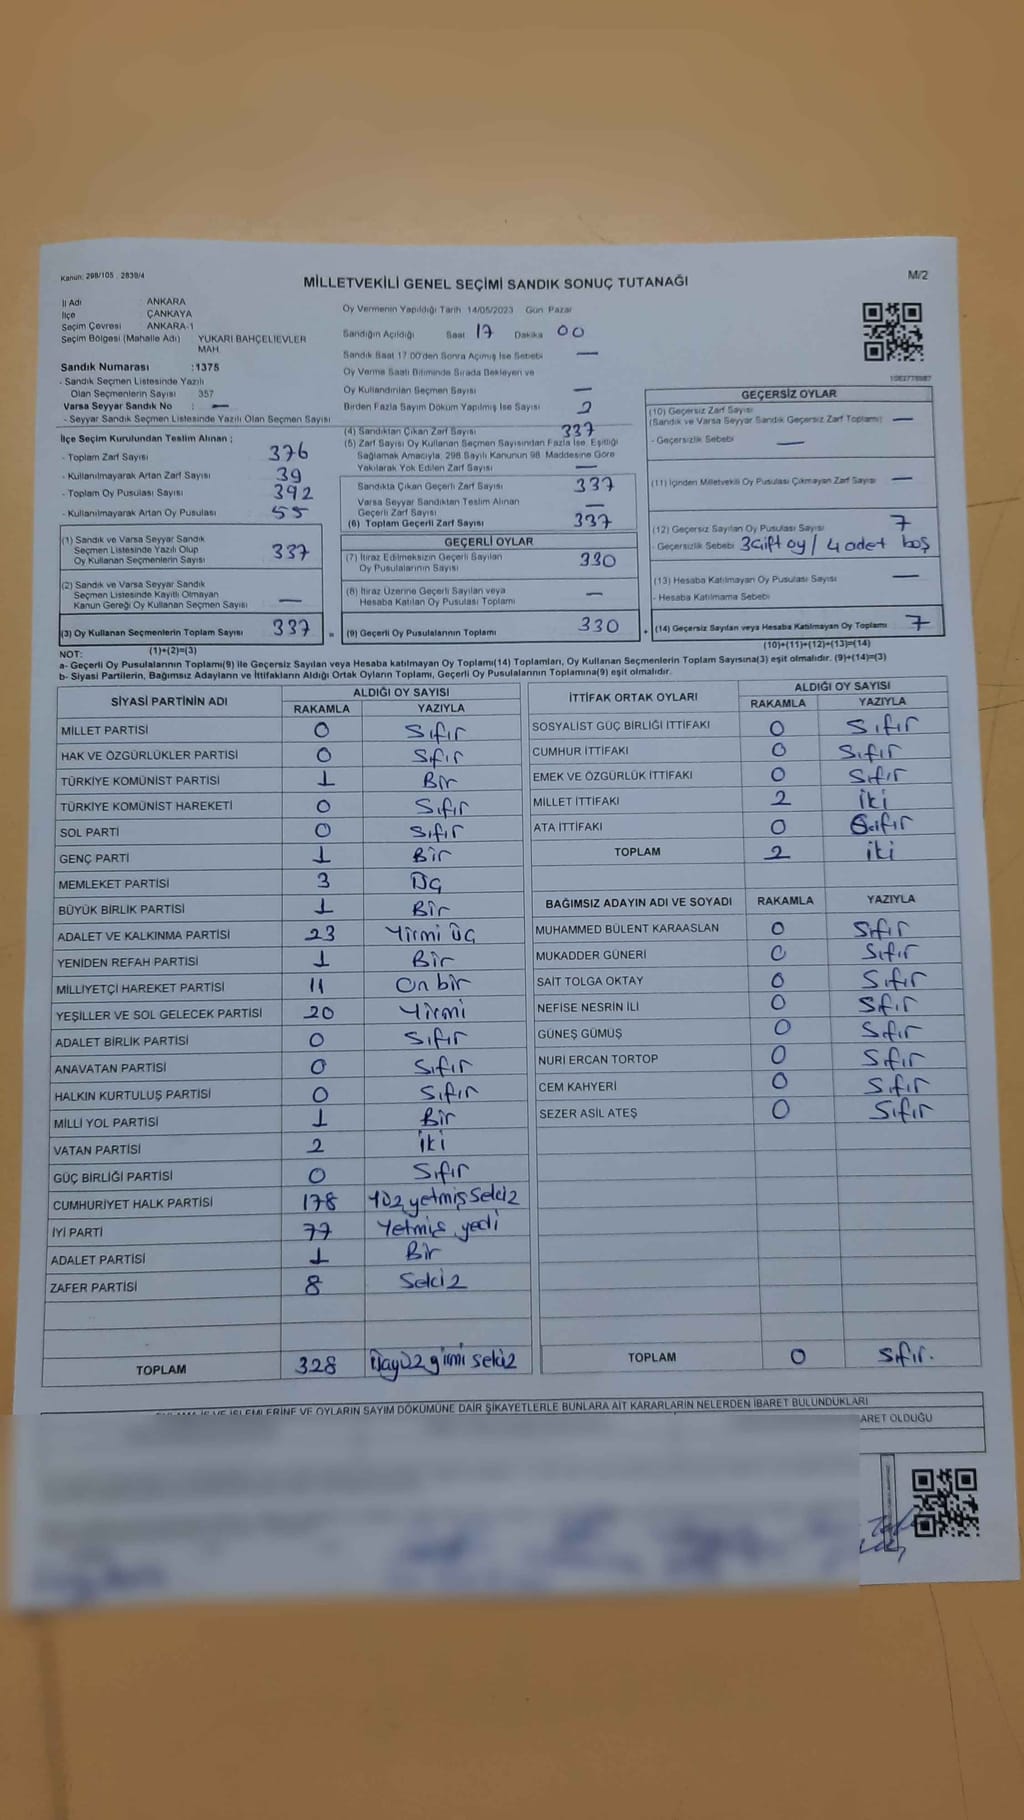 Kanun: 298/105 , 2839/4
MİLLETVEKİLİ GENEL SEÇİMİ SANDIK SONUÇ TUTANAĞI
M/2
İl Adı : ANKARA
İlçe : ÇANKAYA
Seçim Çevresi : ANKARA-1
Seçim Bölgesi (Mahalle Adı) : YUKARI BAHÇELİEVLER MAH.
Sandık Numarası :1375
- Sandık Seçmen Listesinde Yazılı
Olan Seçmenlerin Sayısı : 357
Varsa Seyyar Sandık No : —
- Seyyar Sandık Seçmen Listesinde Yazılı Olan Seçmen Sayısı
İlçe Seçim Kurulundan Teslim Alınan ;
- Toplam Zarf Sayısı 376
- Kullanılmayarak Artan Zarf Sayısı 39
- Toplam Oy Pusulası Sayısı 392
- Kullanılmayarak Artan Oy Pusulası 55
(1) Sandık ve Varsa Seyyar Sandık
Seçmen Listesinde Yazılı Olup
Oy Kullanan Seçmenlerin Sayısı 337
(2) Sandık ve Varsa Seyyar Sandık
Seçmen Listesinde Kayıtlı Olmayan
Kanun Gereği Oy Kullanan Seçmen Sayısı —
(3) Oy Kullanan Seçmenlerin Toplam Sayısı 337 =
(1)+(2)=(3)
Oy Vermenin Yapıldığı Tarih 14/05/2023 Gün Pazar
Sandığın Açıldığı Saat 17 Dakika 00
Sandık Saat 17:00'den Sonra Açılmış İse Sebebi —
Oy Verme Saati Bitiminde Sırada Bekleyen ve
Oy Kullandırılan Seçmen Sayısı —
Birden Fazla Sayım Döküm Yapılmış İse Sayısı 2
(4) Sandıktan Çıkan Zarf Sayısı 337
(5) Zarf Sayısı Oy Kullanan Seçmen Sayısından Fazla İse, Eşitliği
Sağlamak Amacıyla, 298 Sayılı Kanunun 98. Maddesine Göre
Yakılarak Yok Edilen Zarf Sayısı —
Sandıkta Çıkan Geçerli Zarf Sayısı 337
Varsa Seyyar Sandıktan Teslim Alınan
Geçerli Zarf Sayısı —
(6) Toplam Geçerli Zarf Sayısı 337
GEÇERLİ OYLAR
(7) İtiraz Edilmeksizin Geçerli Sayılan
Oy Pusulalarının Sayısı 330
(8) İtiraz Üzerine Geçerli Sayılan veya
Hesaba Katılan Oy Pusulası Toplamı —
(9) Geçerli Oy Pusulalarının Toplamı 330 +
GEÇERSİZ OYLAR
(10) Geçersiz Zarf Sayısı
(Sandık ve Varsa Seyyar Sandık Geçersiz Zarf Toplamı) —
- Geçersizlik Sebebi —
(11) İçinden Milletvekili Oy Pusulası Çıkmayan Zarf Sayısı —
(12) Geçersiz Sayılan Oy Pusulası Sayısı 7
- Geçersizlik Sebebi 3 çift oy / 4 adet boş
(13) Hesaba Katılmayan Oy Pusulası Sayısı —
- Hesaba Katılmama Sebebi
(14) Geçersiz Sayılan veya Hesaba Katılmayan Oy Toplamı 7
(10)+(11)+(12)+(13)=(14)
NOT:
a- Geçerli Oy Pusulalarının Toplamı(9) ile Geçersiz Sayılan veya Hesaba katılmayan Oy Toplamı(14) Toplamları, Oy Kullanan Seçmenlerin Toplam Sayısına(3) eşit olmalıdır. (9)+(14)=(3)
b- Siyasi Partilerin, Bağımsız Adayların ve İttifakların Aldığı Ortak Oyların Toplamı, Geçerli Oy Pusulalarının Toplamına(9) eşit olmalıdır.
SİYASİ PARTİNİN ADI ALDIĞI OY SAYISI
RAKAMLA YAZIYLA
MİLLET PARTİSİ 0 Sıfır
HAK VE ÖZGÜRLÜKLER PARTİSİ 0 Sıfır
TÜRKİYE KOMÜNİST PARTİSİ 1 Bir
TÜRKİYE KOMÜNİST HAREKETİ 0 Sıfır
SOL PARTİ 0 Sıfır
GENÇ PARTİ 1 Bir
MEMLEKET PARTİSİ 3 Üç
BÜYÜK BİRLİK PARTİSİ 1 Bir
ADALET VE KALKINMA PARTİSİ 23 Yirmi üç
YENİDEN REFAH PARTİSİ 1 Bir
MİLLİYETÇİ HAREKET PARTİSİ 11 On bir
YEŞİLLER VE SOL GELECEK PARTİSİ 20 Yirmi
ADALET BİRLİK PARTİSİ 0 Sıfır
ANAVATAN PARTİSİ 0 Sıfır
HALKIN KURTULUŞ PARTİSİ 0 Sıfır
MİLLİ YOL PARTİSİ 1 Bir
VATAN PARTİSİ 2 iki
GÜÇ BİRLİĞİ PARTİSİ 0 Sıfır
CUMHURİYET HALK PARTİSİ 178 Yüz yetmiş sekiz
İYİ PARTİ 77 Yetmiş yedi
ADALET PARTİSİ 1 Bir
ZAFER PARTİSİ 8 Sekiz
TOPLAM 328 Üçyüz yirmi sekiz
İTTİFAK ORTAK OYLARI ALDIĞI OY SAYISI
RAKAMLA YAZIYLA
SOSYALİST GÜÇ BİRLİĞİ İTTİFAKI 0 Sıfır
CUMHUR İTTİFAKI 0 Sıfır
EMEK VE ÖZGÜRLÜK İTTİFAKI 0 Sıfır
MİLLET İTTİFAKI 2 iki
ATA İTTİFAKI 0 Sıfır
TOPLAM 2 iki
BAĞIMSIZ ADAYIN ADI VE SOYADI RAKAMLA YAZIYLA
MUHAMMED BÜLENT KARAASLAN 0 Sıfır
MUKADDER GÜNERİ 0 Sıfır
SAİT TOLGA OKTAY 0 Sıfır
NEFİSE NESRİN İLİ 0 Sıfır
GÜNEŞ GÜMÜŞ 0 Sıfır
NURİ ERCAN TORTOP 0 Sıfır
CEM KAHYERİ 0 Sıfır
SEZER ASİL ATEŞ 0 Sıfır
TOPLAM 0 Sıfır.
İŞLEMLERİNE VE OYLARIN SAYIM DÖKÜMÜNE DAİR ŞİKAYETLERLE BUNLARA AİT KARARLARIN NELERDEN İBARET BULUNDUKLARI
OLDUĞU